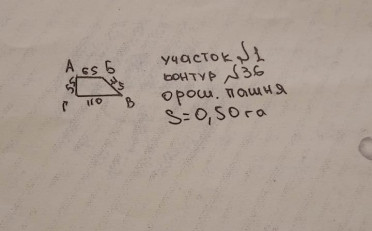 А 65 Б
55 75
Г 110 В
участок №1
контур №36
орош. пашня
S=0,50га